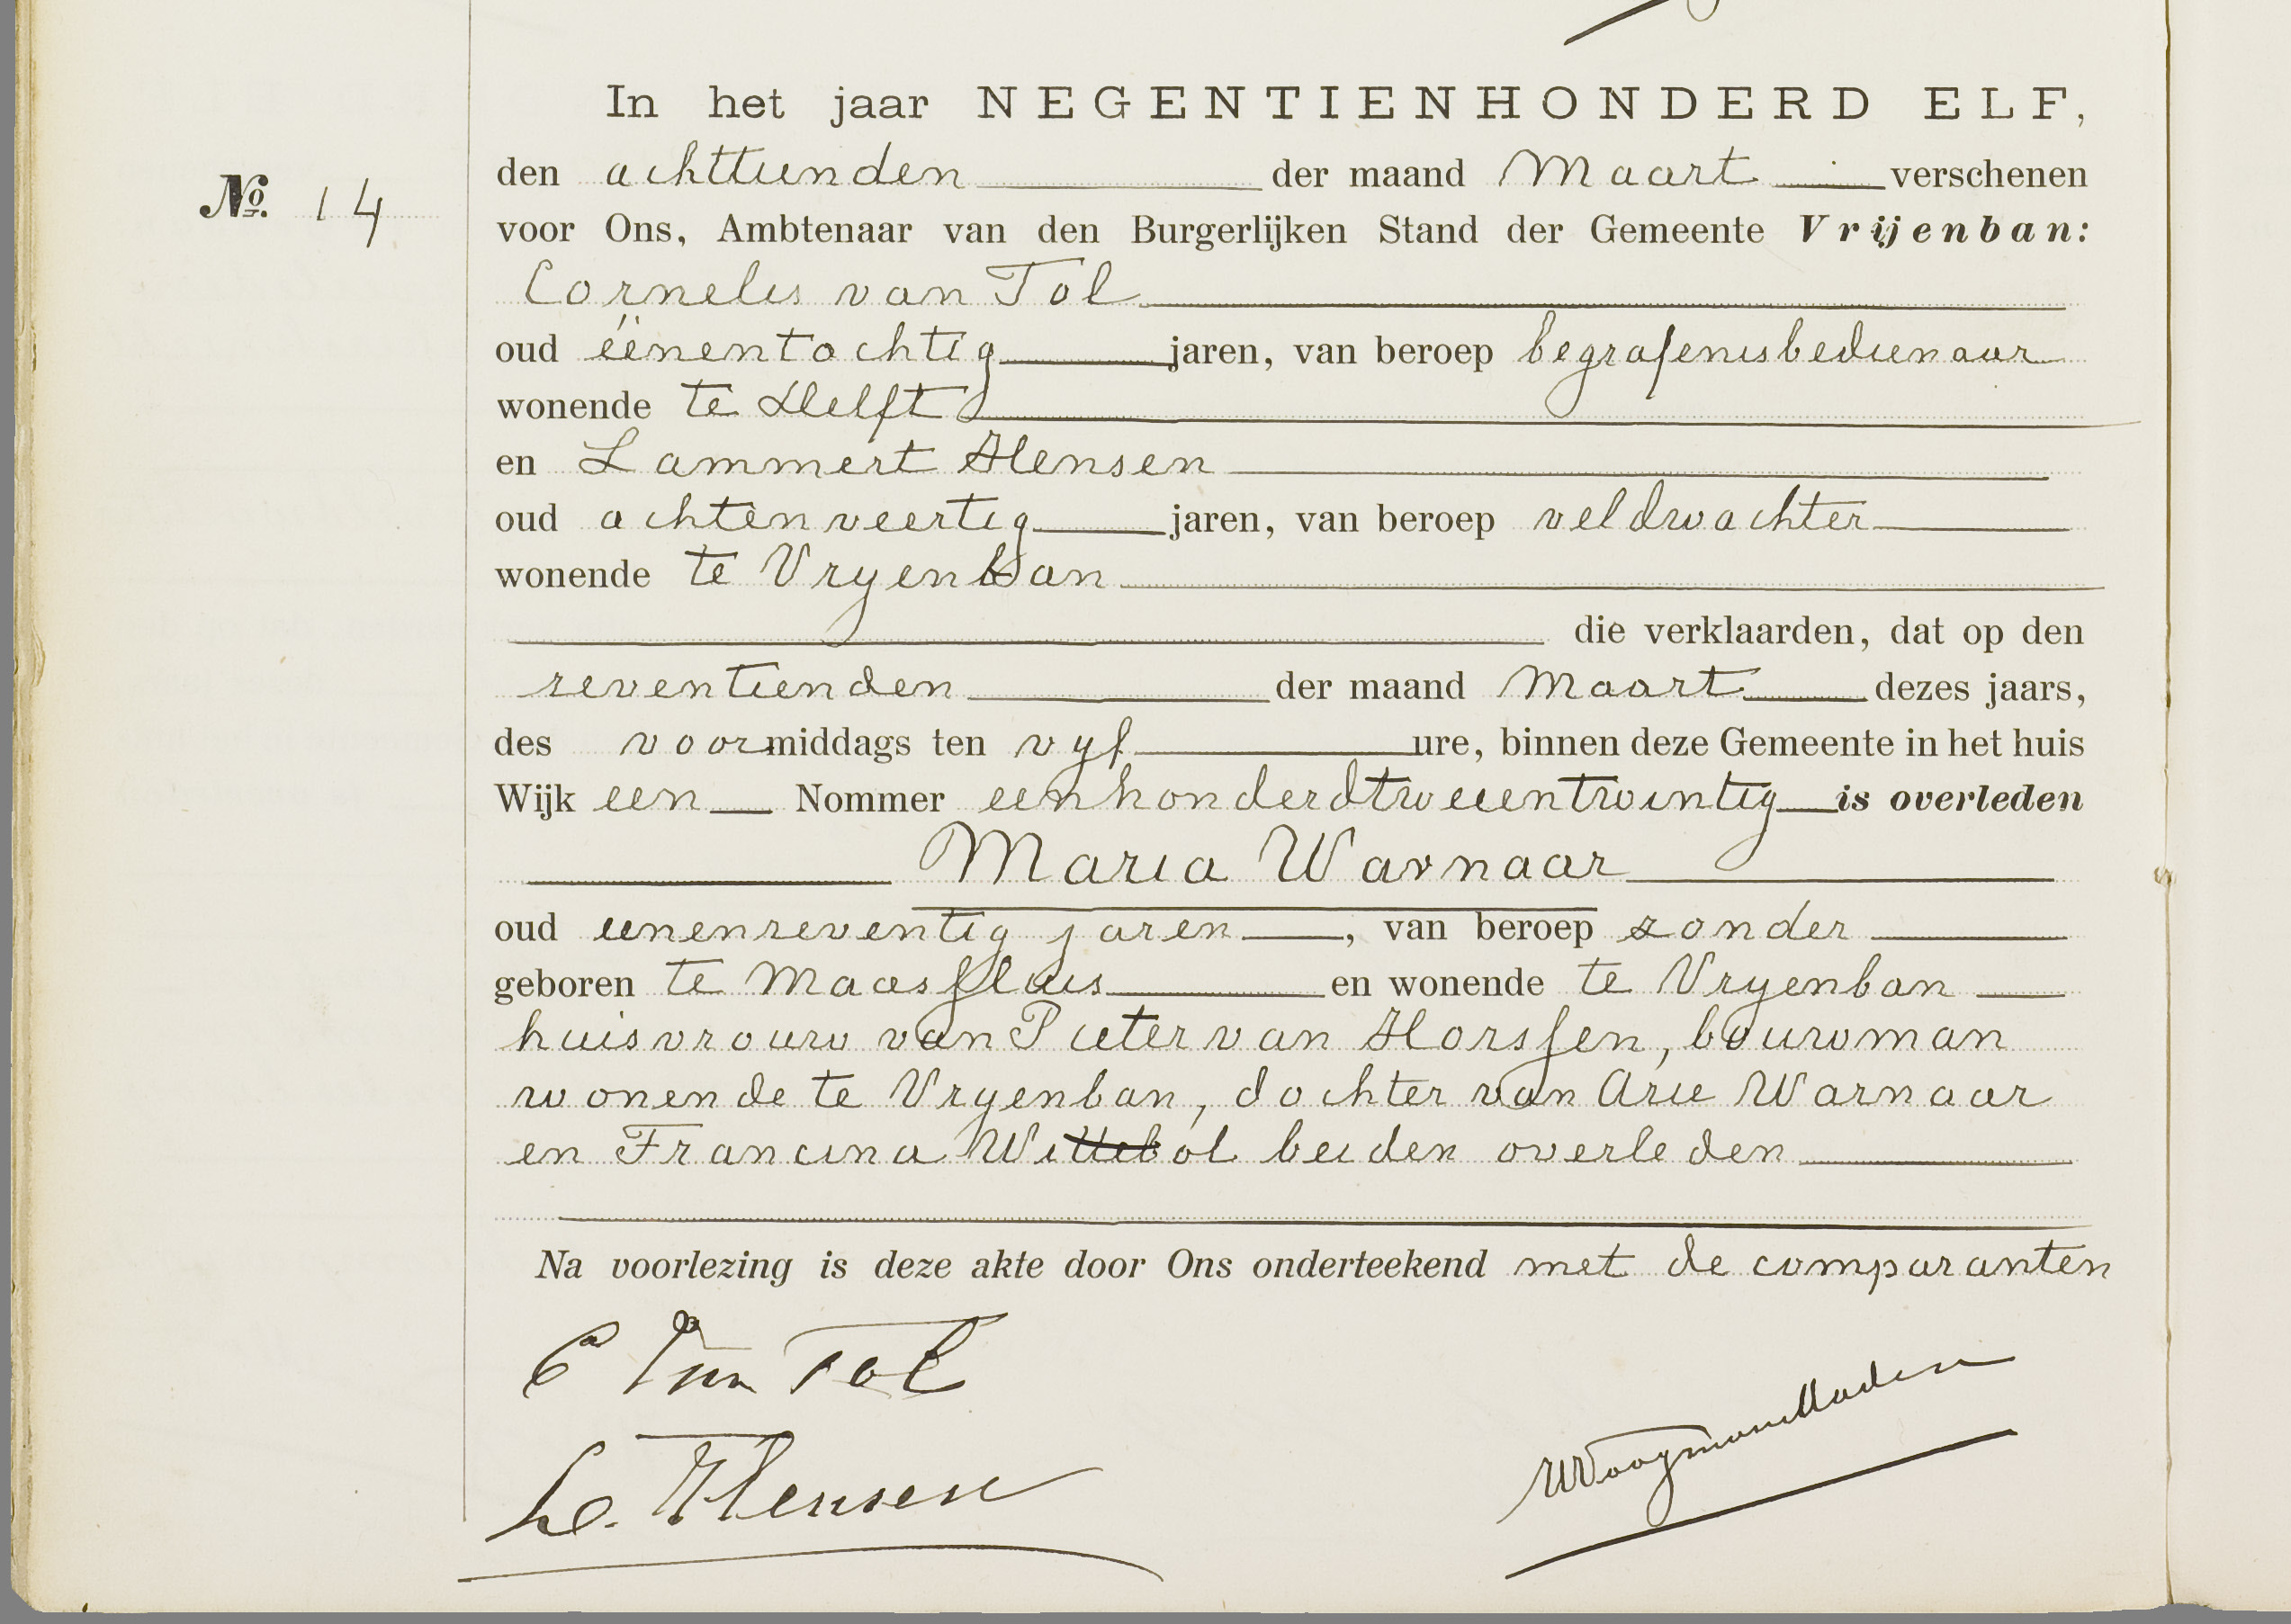 In het jaar NEGENTIENHONDERD ELF,
No. 14
den achttienden der maand Maart verschenen
voor Ons, Ambtenaar van den Burgerlijken Stand der Gemeente Vrijenban:
Cornelis van Tol
oud éénentachtig jaren, van beroep begrafenisbedienaar
wonende te Delft
en Lammert Hensen
oud achtenveertig jaren, van beroep veldwachter
wonende te Vryenban
die verklaarden, dat op den
zeventienden der maand Maart dezes jaars,
des voormiddags ten vyf ure, binnen deze Gemeente in het huis
Wijk een Nommer eenhonderdtweeentwintig is overleden
Maria Warnaar
oud eenenzeventig jaren, van beroep zonder
geboren te Maassluis en wonende te Vryenban
huisvrouw van Pieter van Horssen, bouwman
wonende te Vryenban, dochter van Arie Warnaar
en Francina Wittebol beiden overleden
Na voorlezing is deze akte door Ons onderteekend met de comparanten
C van Tol
L. Hensen